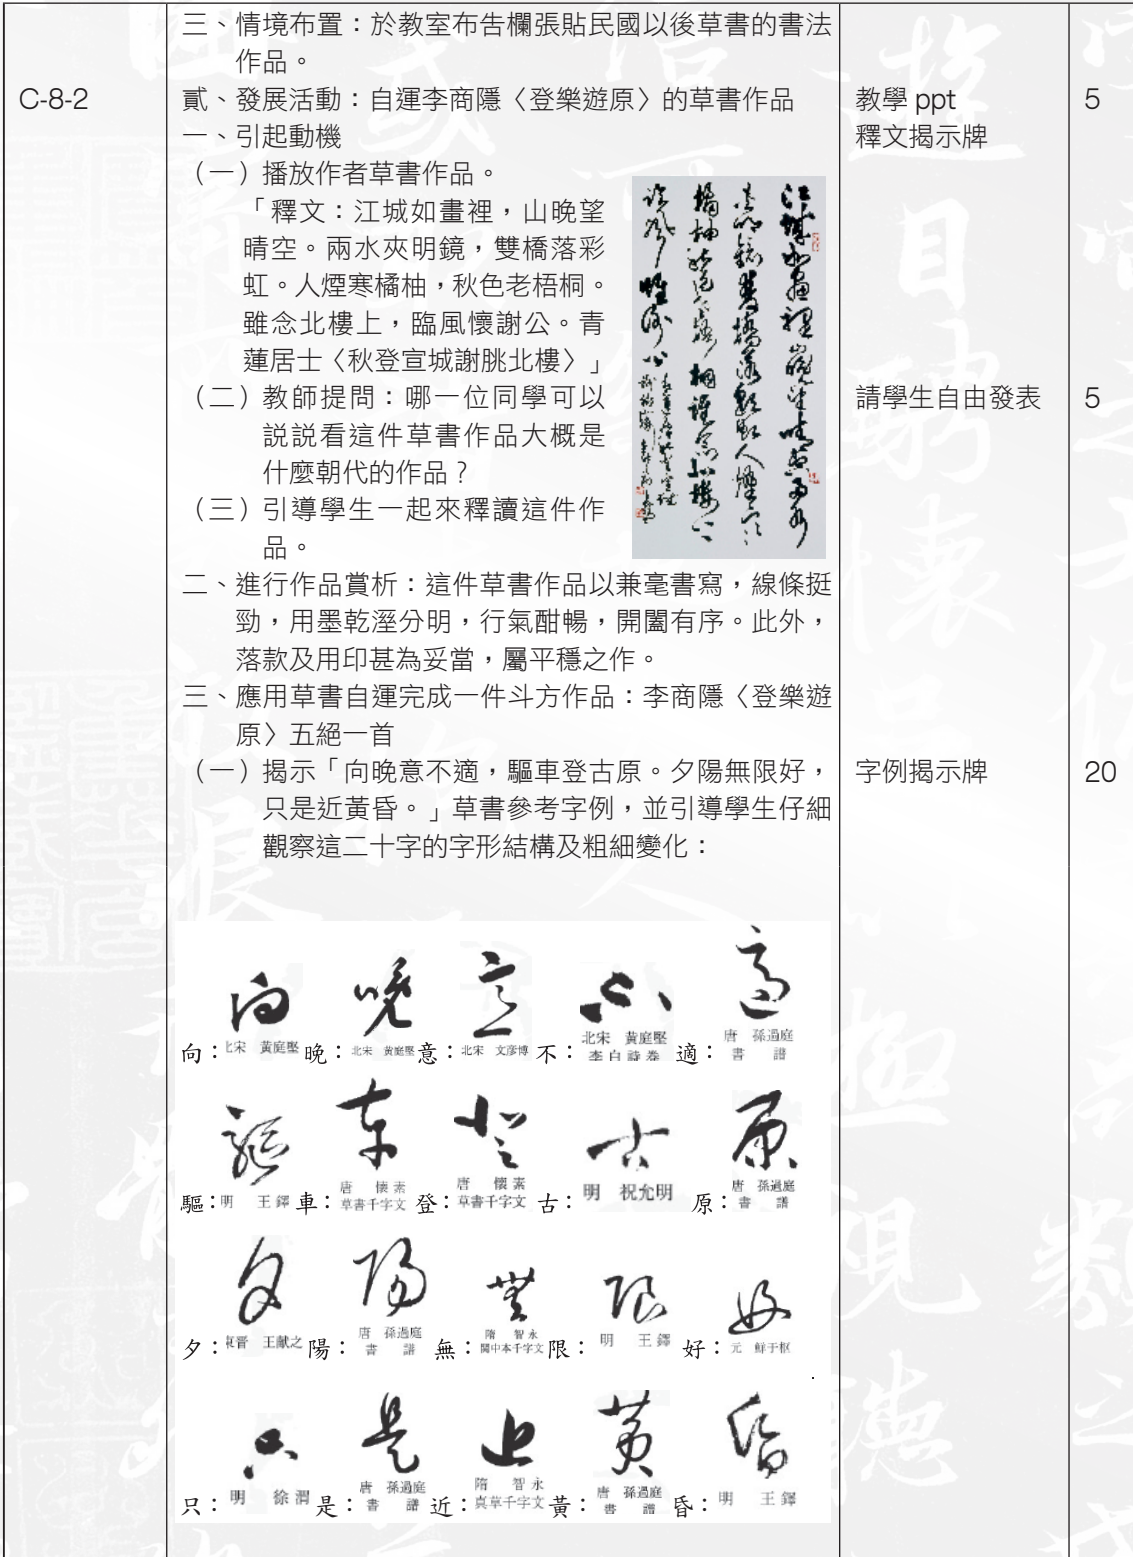 三、情境布置：於教室布告欄張貼民國以後草書的書法
作品。
C-8-2
貳、發展活動：自運李商隱〈登樂遊原〉的草書作品
教學 ppt
5
一、引起動機
釋文揭示牌
（一）播放作者草書作品。
「釋文：江城如畫裡，山晚望
晴空。兩水夾明鏡，雙橋落彩
虹。人煙寒橘柚，秋色老梧桐。
雖念北樓上，臨風懷謝公。青
蓮居士〈秋登宣城謝朓北樓〉」
（二）教師提問：哪一位同學可以
請學生自由發表
5
說說看這件草書作品大概是
什麼朝代的作品？
（三）引導學生一起來釋讀這件作
品。
二、進行作品賞析：這件草書作品以兼毫書寫，線條挺
勁，用墨乾溼分明，行氣酣暢，開闔有序。此外，
落款及用印甚為妥當，屬平穩之作。
三、應用草書自運完成一件斗方作品：李商隱〈登樂遊
原〉五絕一首
（一）揭示「向晚意不適，驅車登古原。夕陽無限好，
字例揭示牌
20
只是近黃昏。」草書參考字例，並引導學生仔細
觀察這二十字的字形結構及粗細變化：
向：北宋 黃庭堅 晚：北宋 黃庭堅 意：北宋 文彥博 不：北宋 黃庭堅 李白詩卷 適：唐 孫過庭 書譜
驅：明 王鐸 車：唐 懷素 草書千字文 登：唐 懷素 草書千字文 古：明 祝允明 原：唐 孫過庭 書譜
夕：東晉 王獻之 陽：唐 孫過庭 書譜 無：隋 智永 關中本千字文 限：明 王鐸 好：元 鮮于樞
只：明 徐渭 是：唐 孫過庭 書譜 近：隋 智永 真草千字文 黃：唐 孫過庭 書譜 昏：明 王鐸